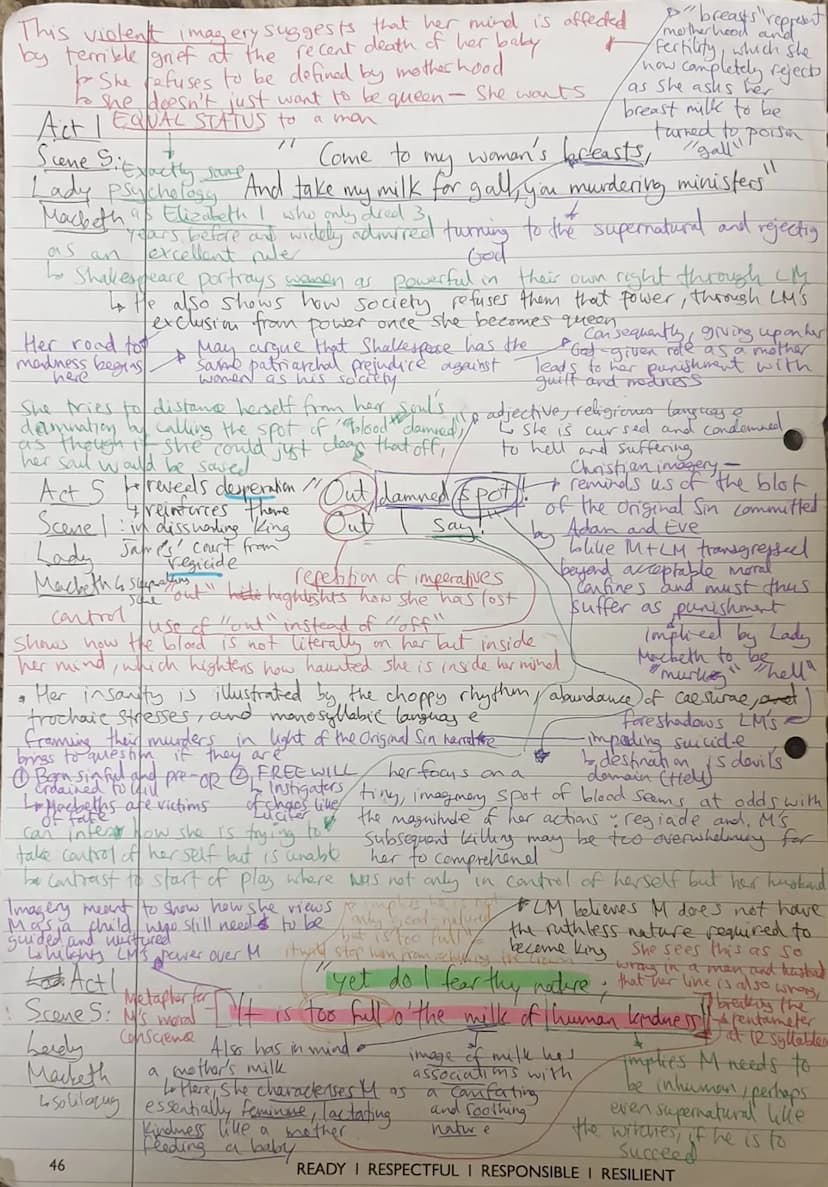 This violent imagery suggests that her mind is affected
by terrible grief at the recent death of her baby
↳ She refuses to be defined by motherhood
↳ She doesn't just want to be queen – she wants
EQUAL STATUS to a man
"breasts" represent
motherhood and
fertility, which she
now completely rejects
as she asks her
breast milk to be
turned to poison
"gall"
Act 1
Scene 5:
Lady
Macbeth
"Come to my woman's breasts,
And take my milk for gall, you murdering ministers"
Exactly same
psychology
as Elizabeth 1 who only died 3
years before and widely admired
as an excellent ruler
turning to the supernatural and rejecting
God
↳ Shakespeare portrays women as powerful in their own right through LM
↳ He also shows how society refuses them that power, through LM's
exclusion from power once she becomes queen
Her road to
madness begins
here
May argue that Shakespeare has the
same patriarchal prejudice against
women as his society
Consequently, giving up on her
God-given role as a mother
leads to her punishment with
guilt and madness
She tries to distance herself from her soul's
damnation by calling the spot of "blood" "damned",
as though if she could just clean that off,
her soul would be saved
adjective, religious language
↳ she is cursed and condemned
to hell and suffering
Christian imagery –
reminds us of the blot
of the Original Sin committed
by Adam and Eve
↳ like M + LM transgressed
beyond acceptable moral
confines and must thus
suffer as punishment
implied by Lady
Macbeth to be
"murky" "hell"
Act 5
Scene 1:
Lady
Macbeth
↳ reveals desperation
↳ reinforces theme
in dissuading King
James' court from
regicide
"Out damned spot!
Out I say!"
repetition of imperatives
"out" highlights how she has lost
control
use of "out" instead of "off"
shows how the blood is not literally on her but inside
her mind, which hightens how haunted she is inside her mind
• Her insanity is illustrated by the choppy rhythm, abundance of caesurae, and
trochaic stresses, and monosyllabic language
foreshadows LM's
impending suicide
↳ destination is devils
domain (Hell)
framing their murders in light of the Original Sin narrative
brings to question if they are
① Born sinful and pre-
ordained to kill
↳ Macbeths are victims
of fate
OR
② FREE WILL
↳ Instigators
of chaos like
Lucifer
her focus on a
tiny, imaginary spot of blood seems at odds with
the magnitude of her actions: regicide and M's
subsequent killing may be too overwhelming for
her to comprehend
can infer how she is trying to
take control of herself but is unable
↳ contrast to start of play where was not only in control of herself but her husband
Imagery meant to show how she views
M as a child who still needs to be
guided and nurtured
↳ highlights LM's power over M
only good-natured
but is too full
LM believes M does not have
the ruthless nature required to
become King
She sees this as so
wrong in a man and husband
that her line is also wrong,
breaking the
pentameter
at 12 syllables
Act 1
Scene 5:
Lady
Macbeth
↳ soliloquy
"yet do I fear thy nature;
It is too full o'the milk of human kindness"
Metaphor for
M's moral
conscience
Also has in mind
a mother's milk
↳ Here, she characterises M as
essentially feminine, lactating
kindness like a mother
feeding a baby
image of milk has
associations with
a comforting
and soothing
nature
implies M needs to
be inhuman, perhaps
even supernatural like
the witches, if he is to
succeed
46
READY I RESPECTFUL I RESPONSIBLE I RESILIENT